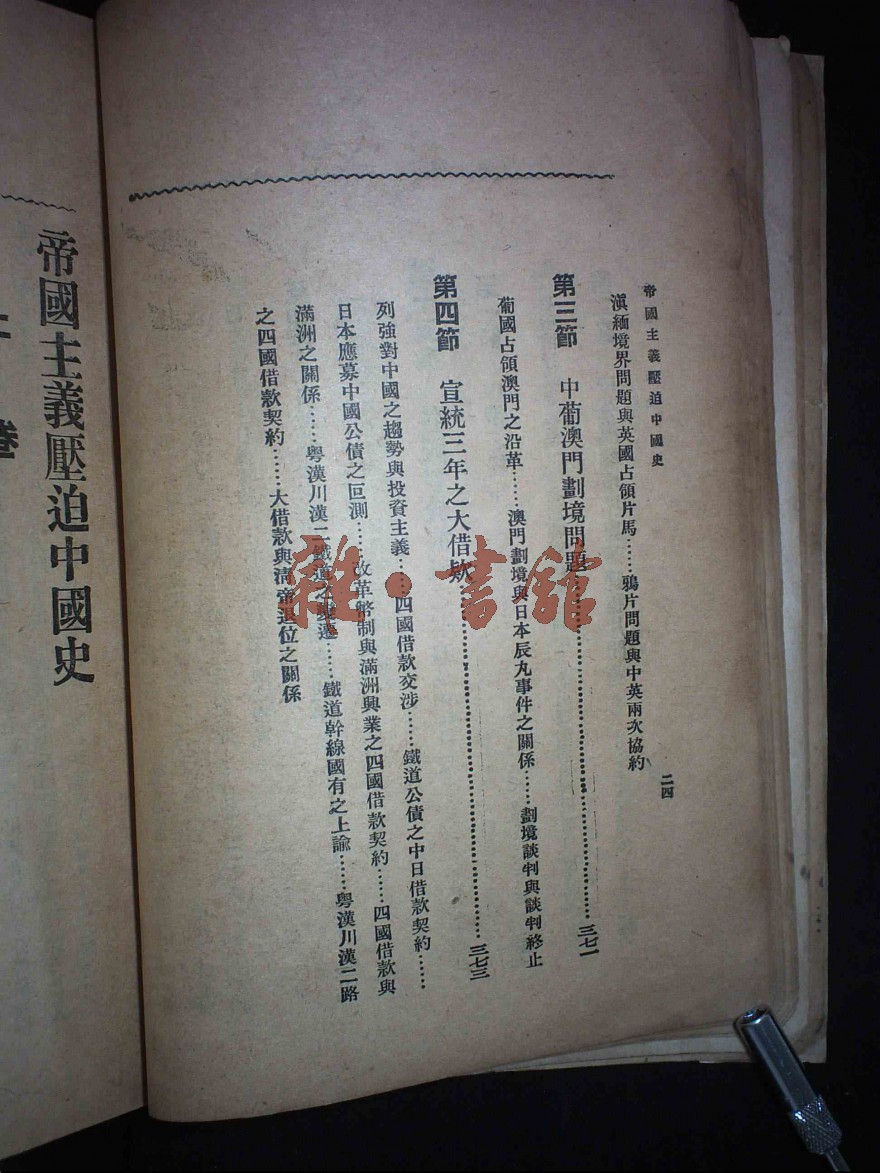 帝國主義壓迫中國史
二四
滇緬境界問題與英國占領片馬……鴉片問題與中英兩次協約
第三節　中葡澳門劃境問題……三七一
葡國占領澳門之沿革……澳門劃境與日本辰丸事件之關係……劃境談判與談判終止
第四節　宣統三年之大借欵……三七三
列強對中國之趨勢與投資主義……四國借款交涉……鐵道公債之中日借款契約……
日本應募中國公債之叵測……改革幣制與滿洲興業之四國借款契約……四國借款與
滿洲之關係……粵漢川漢二鐵道之變遷……鐵道幹線國有之上諭……粵漢川漢二路
之四國借款契約……大借款與清帝退位之關係
帝國主義壓迫中國史
卷
雜·書館